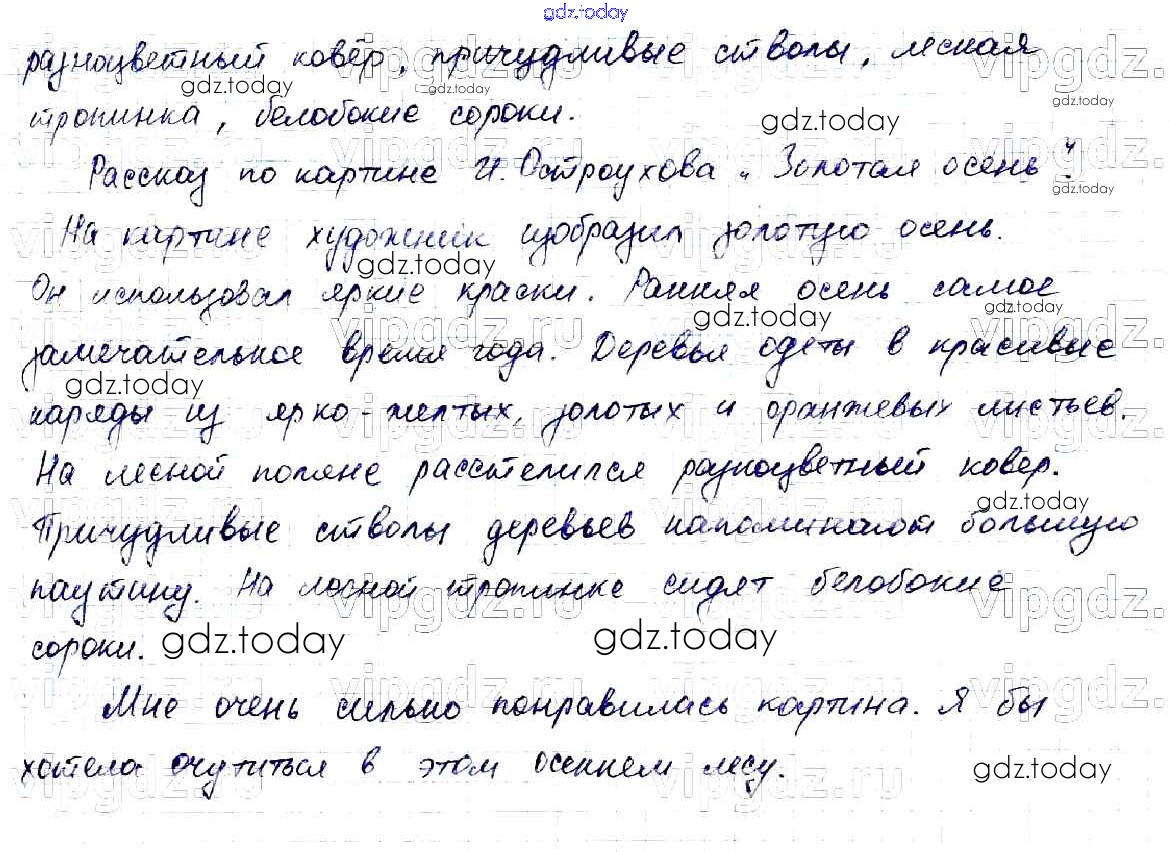 gdz.today
разноцветный ковёр, причудливые стволы, лесная
тропинка, белобокие сороки.
Рассказ по картине И. Остроухова „Золотая осень".
На картине художник изобразил золотую осень.
Он использовал яркие краски. Ранняя осень самое
замечательное время года. Деревья одеты в красивые
наряды из ярко-желтых, золотых и оранжевых листьев.
На лесной поляне расстелился разноцветный ковер.
Причудливые стволы деревьев напоминают большую
паутину. На лесной тропинке сидят белобокие
сороки.
Мне очень сильно понравилась картина. Я бы
хотела очутиться в этом осеннем лесу.